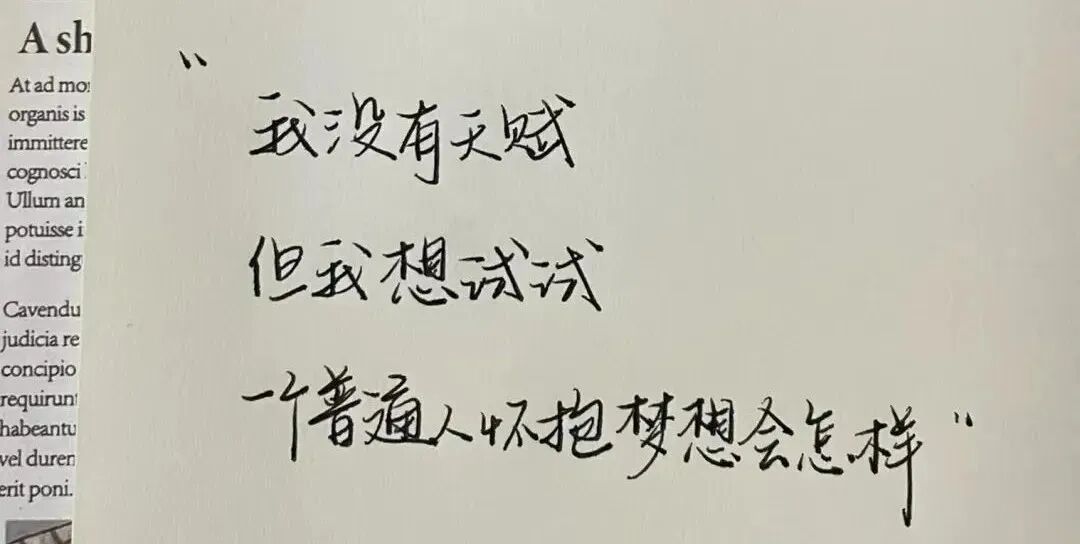 A sh
At ad mo
organis is
immittere
cognosci
Ullum an
potuisse i
id disting
Cavendu
judicia re
concipio
requirunt
habeantu
vel duren
erit poni.
“
我没有天赋
但我想试试
一个普通人怀抱梦想会怎样”